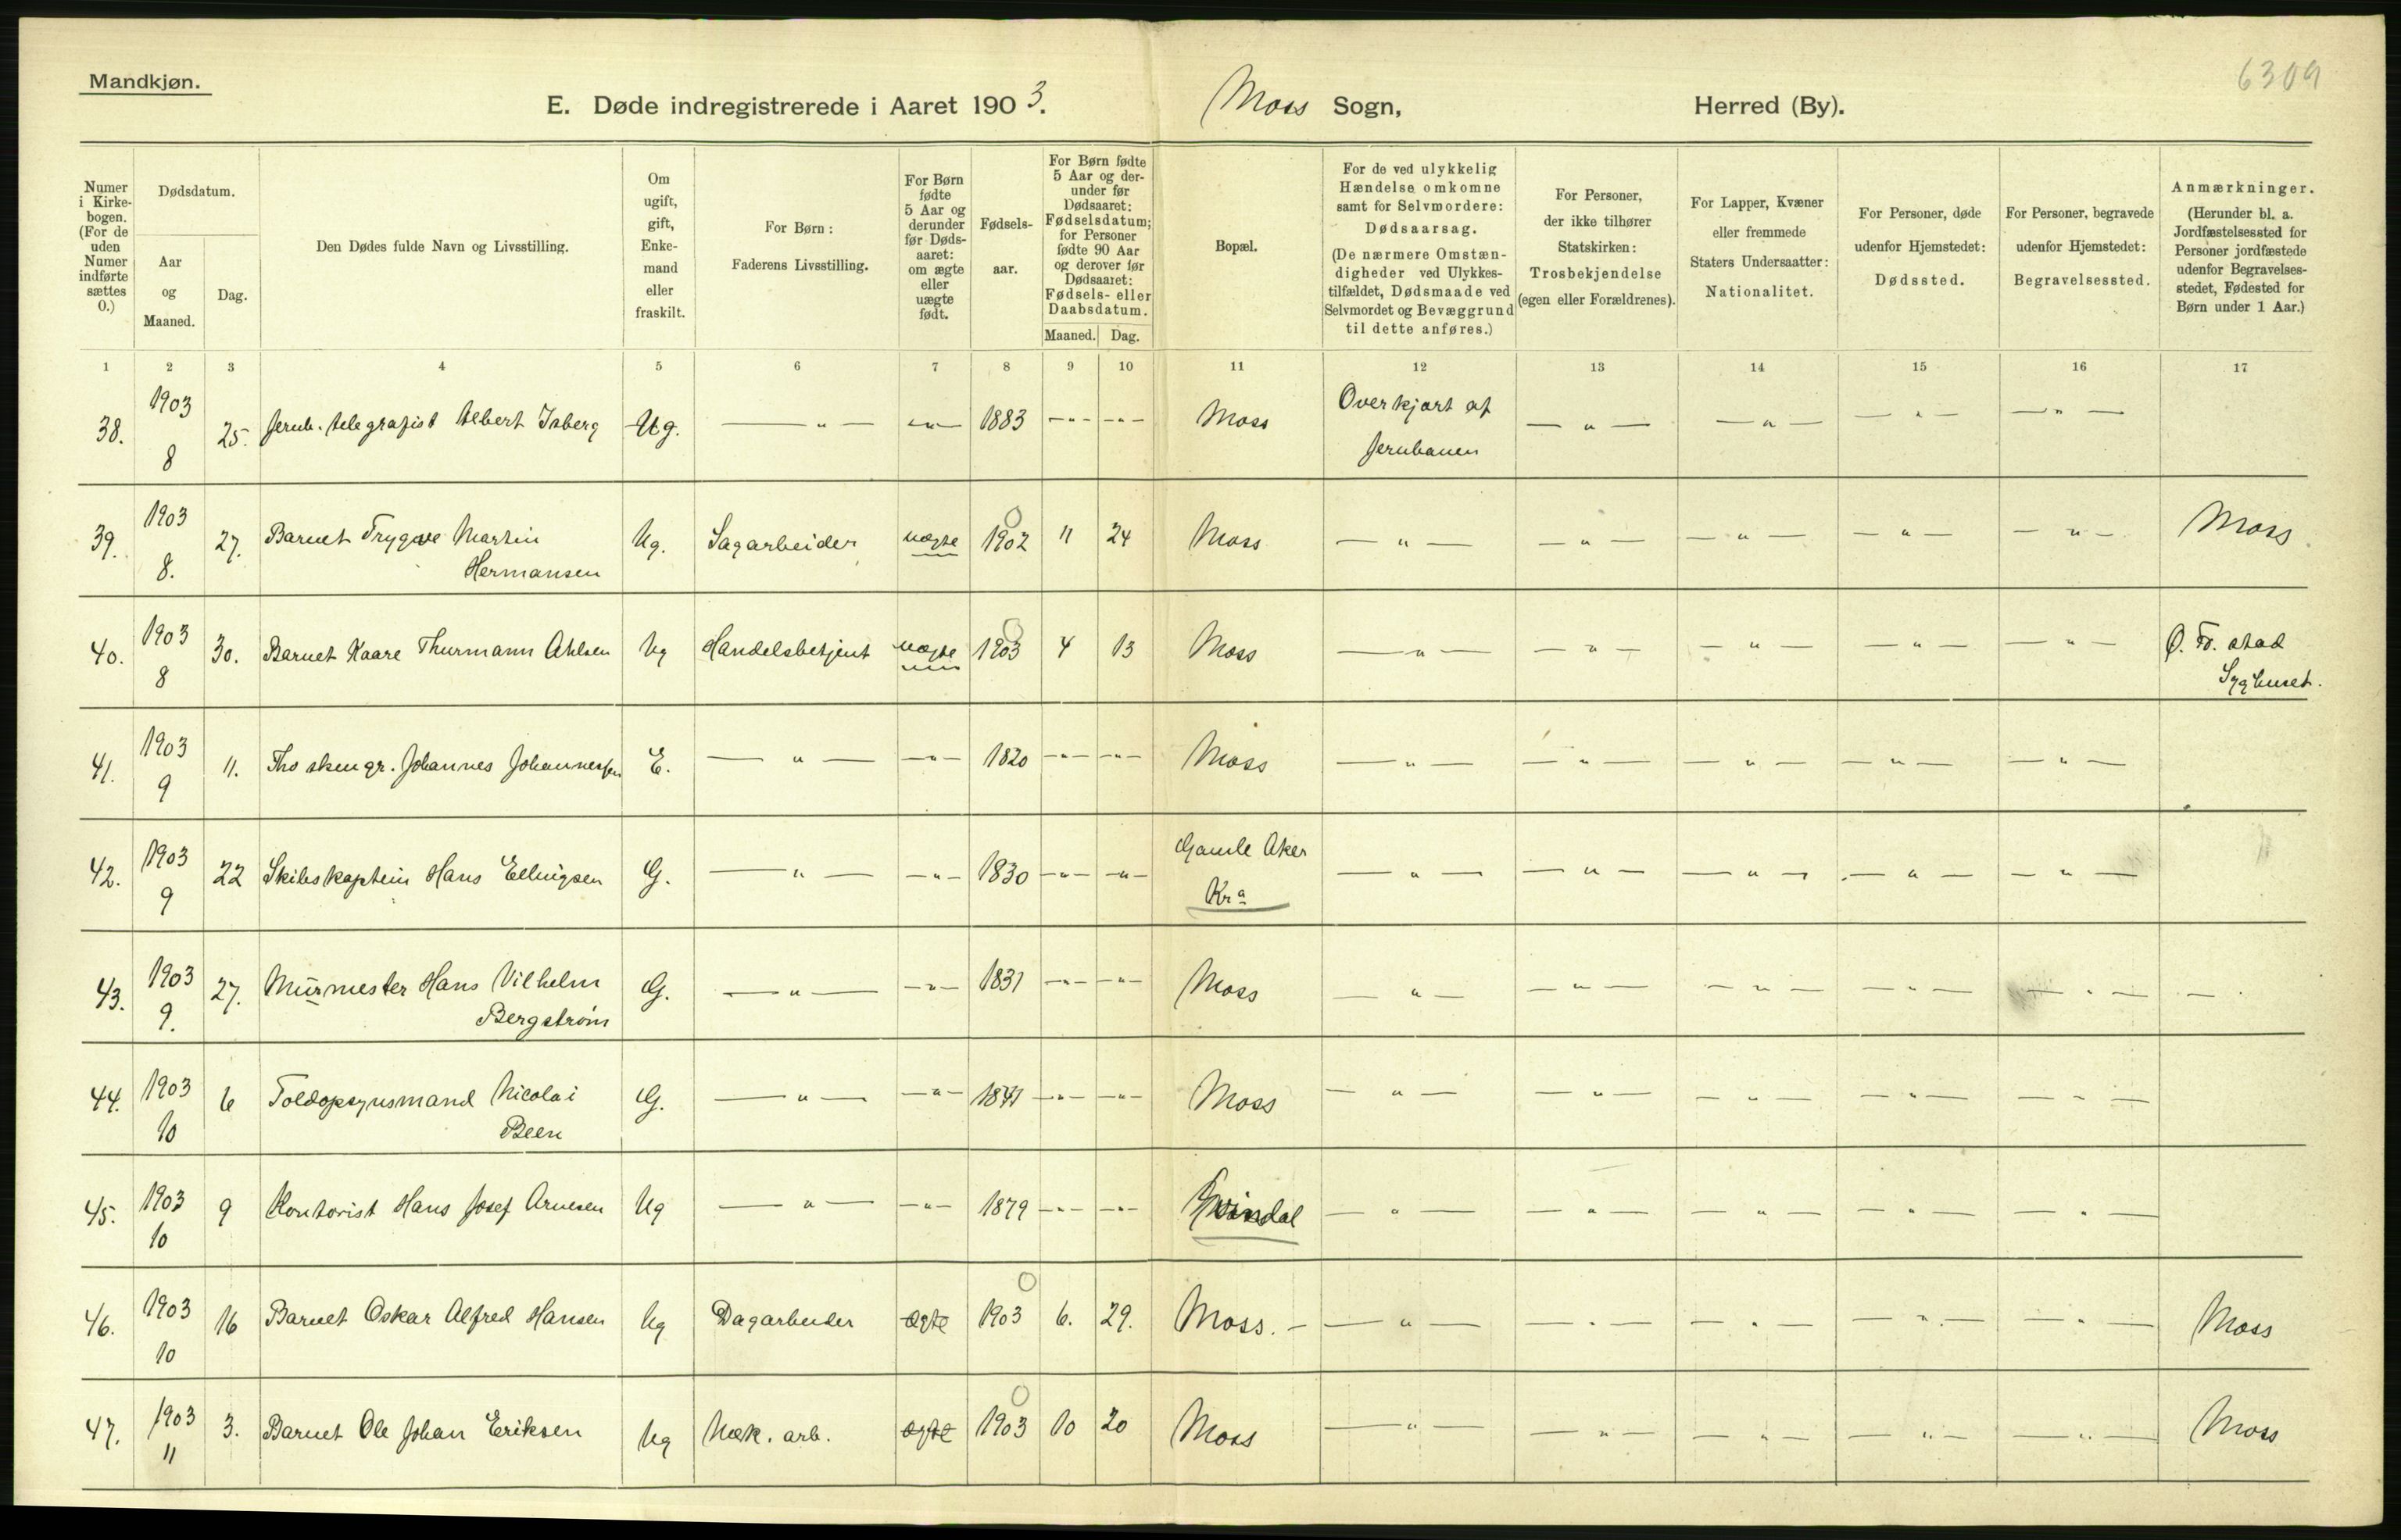 Mandkjøn.
6309
E. Døde indregistrerede i Aaret 1903. Moss Sogn, Herred (By).
Numer i Kirke-bogen. (For de uden Numer indførte sættes 0.)
Dødsdatum.
Aar og Maaned.
Dag.
Den Dødes fulde Navn og Livsstilling.
Om ugift, gift, Enke-mand eller fraskilt.
For Børn: Faderens Livsstilling.
For Børn fødte 5 Aar og derunder før Døds-aaret: om ægte eller uægte født.
Fødsels-aar.
For Børn fødte 5 Aar og der-under før Dødsaaret: Fødselsdatum; for Personer fødte 90 Aar og derover før Dødsaaret: Fødsels- eller Daabsdatum.
Maaned. Dag.
Bopæl.
For de ved ulykkelig Hændelse omkomne samt for Selvmordere: Dødsaarsag. (De nærmere Omstæn-digheder ved Ulykkes-tilfældet, Dødsmaade ved Selvmordet og Bevæggrund til dette anføres.)
For Personer, der ikke tilhører Statskirken: Trosbekjendelse (egen eller Forældrenes).
For Lapper, Kvæner eller fremmede Staters Undersaatter: Nationalitet.
For Personer, døde udenfor Hjemstedet: Dødssted.
For Personer, begravede udenfor Hjemstedet: Begravelsessted.
Anmærkninger. (Herunder bl. a. Jordfæstelsessted for Personer jordfæstede udenfor Begravelses-stedet, Fødested for Børn under 1 Aar.)
1 2 3 4 5 6 7 8 9 10 11 12 13 14 15 16 17
38. 1903 8 25. Jernb. telegrafist Albert Isberg Ug. — " — — " — 1883 — " — — " — Moss Overkjørt af Jernbanen — " — — " — — " — — " —
39. 1903 8. 27. Barnet Trygve Martin Hermansen Ug. Sagarbeider uægte 1902 11 24 Moss — " — — " — — " — — " — — " — Moss
40. 1903 8 30. Barnet Kaare Thurmann Ahlsen Ug Handelsbetjent uægte 1903 4 13 Moss — " — — " — — " — — " — — " — Ø. Fr. stad Syghuset.
41. 1903 9 11. Johannes Johannessen E. — " — — " — 1820 — " — — " — Moss — " — — " — — " — — " — — " —
42. 1903 9 22 Skibskaptein Hans Ellingsen G. — " — — " — 1830 — " — — " — Gamle Aker Kra — " — — " — — " — — " — — " —
43. 1903 9. 27. Murmester Hans Vilhelm Bergstrøm G. — " — — " — 1831 — " — — " — Moss — " — — " — — " — — " — — " — —
44. 1903 10 6 Toldopsynsmand Nicolai Been G. — " — — " — 1841 — " — — " — Moss — " — — " — — " — — " — — " —
45. 1903 10 9 Kontorist Hans Josef Arnesen Ug — " — — " — 1879 — " — — " — — " — — " — — " — — " — — " —
46. 1903 10 16 Barnet Oskar Alfred Hansen Ug Dagarbeider ægte 1903 6. 29. Moss. — — " — — " — — " — — " — — " — Moss
47. 1903 11 3. Barnet Ole Johan Eriksen Ug Mek. arb. ægte 1903 10 20 Moss — " — — " — — " — — " — — " — Moss